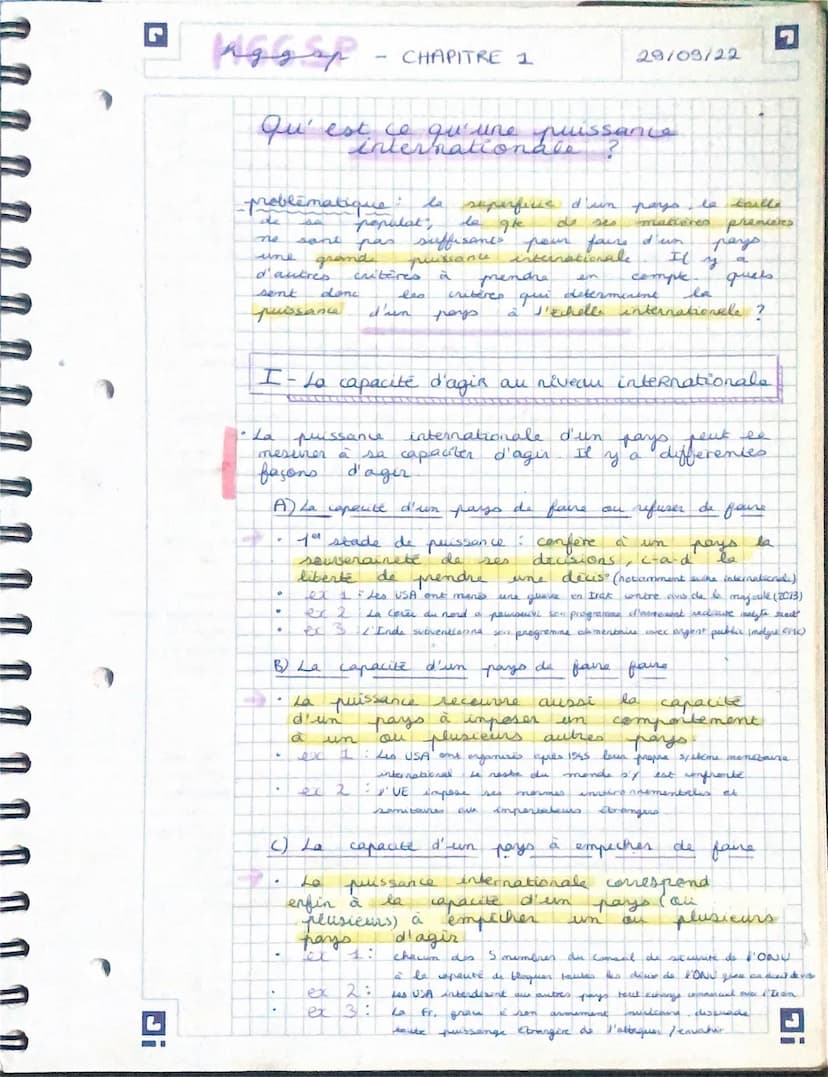 HGGSP
hggsp - CHAPITRE 1 29/09/22
Qu'est ce qu'une puissance
internationale ?
problématique : la superficie d'un pays, la taille
de sa populat°, la qte de ses matières premières
ne sont pas suffisants pour faire d'un pays
une grande puissance internationale. Il y a
d'autres critères à prendre en compte. quels
sont donc les critères qui déterminent la
puissance d'un pays à l'échelle internationale ?
I - La capacité d'agir au niveau internationale
• La puissance internationale d'un pays peut se
mesurer à sa capaciter d'agir. Il y a différentes
façons d'agir
A) La capacité d'un pays de faire ou refuser de faire
→ • 1er stade de puissance : confère à un pays la
souveraineté de ses décisions, c-a-d la
liberté de prendre une décis° (notamment internationale)
• ex 1 : Les USA ont menés une guerre en Irak contre avis de la majorité
• ex 2 : La Corée du nord a poursuivi son programme d'armement nucléaire
• ex 3 : L'Inde subventionne son programme alimentaire avec argent public (malgré OMC)
B) La capacité d'un pays de faire faire
→ • La puissance recouvre aussi la capacité
d'un pays à imposer un comportement
à un ou plusieurs autres pays.
• ex 1 : Les USA ont organisés après 1945 leur propre système monétaire
international le reste du monde s'y est confronté
• ex 2 : l'UE impose ses normes environnementales et
sanitaires aux importateurs étrangers
C) La capacité d'un pays à empêcher de faire
→ • La puissance internationale correspond
enfin à la capacité d'un pays (ou
plusieurs) à empêcher un ou plusieurs
pays d'agir
• ex 1 : chacun des 5 membres du Conseil de sécurité de l'ONU
à la capacité de bloquer toutes les de l'ONU grâce au droit de
• ex 2 : Les USA interdisent aux autres pays tout échange commercial avec l'Iran
• ex 3 : La Fr, grâce à son armement nucléaire, dissuade
toute puissance étrangère de l'attaquer / envahir